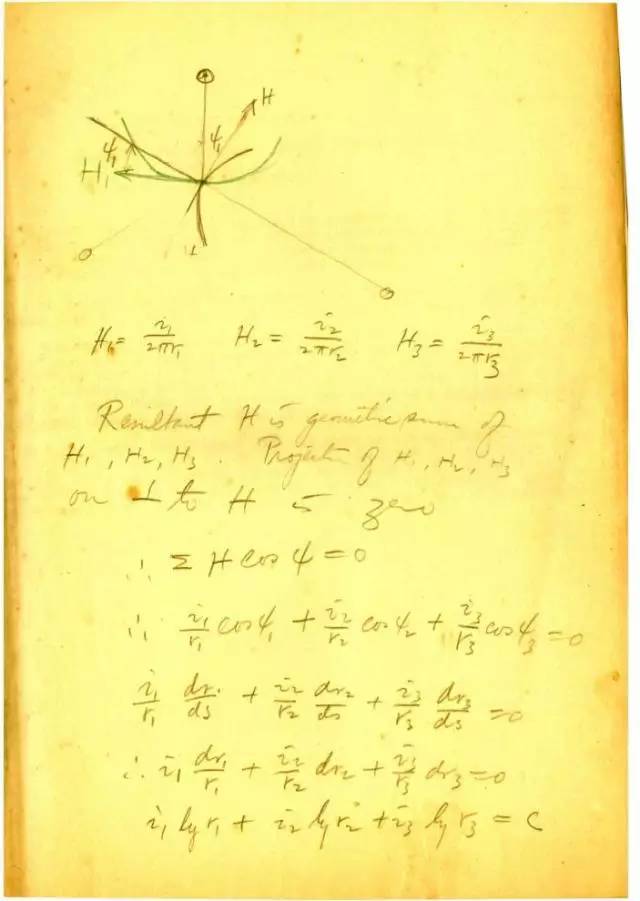 H
ψ₁
ψ₁
H₁
⊥
H₁ = i₁/2πr₁ H₂ = i₂/2πr₂ H₃ = i₃/2πr₃
Resultant H is geometric sum of
H₁, H₂, H₃. Projection of H₁, H₂, H₃
on ⊥ to H is zero
∴ Σ H cos ψ = 0
∴ i₁/r₁ cos ψ₁ + i₂/r₂ cos ψ₂ + i₃/r₃ cos ψ₃ = 0
i₁/r₁ dr₁/ds + i₂/r₂ dr₂/ds + i₃/r₃ dr₃/ds = 0
∴ i₁ dr₁/r₁ + i₂/r₂ dr₂ + i₃/r₃ dr₃ = 0
i₁ log r₁ + i₂ log r₂ + i₃ log r₃ = C